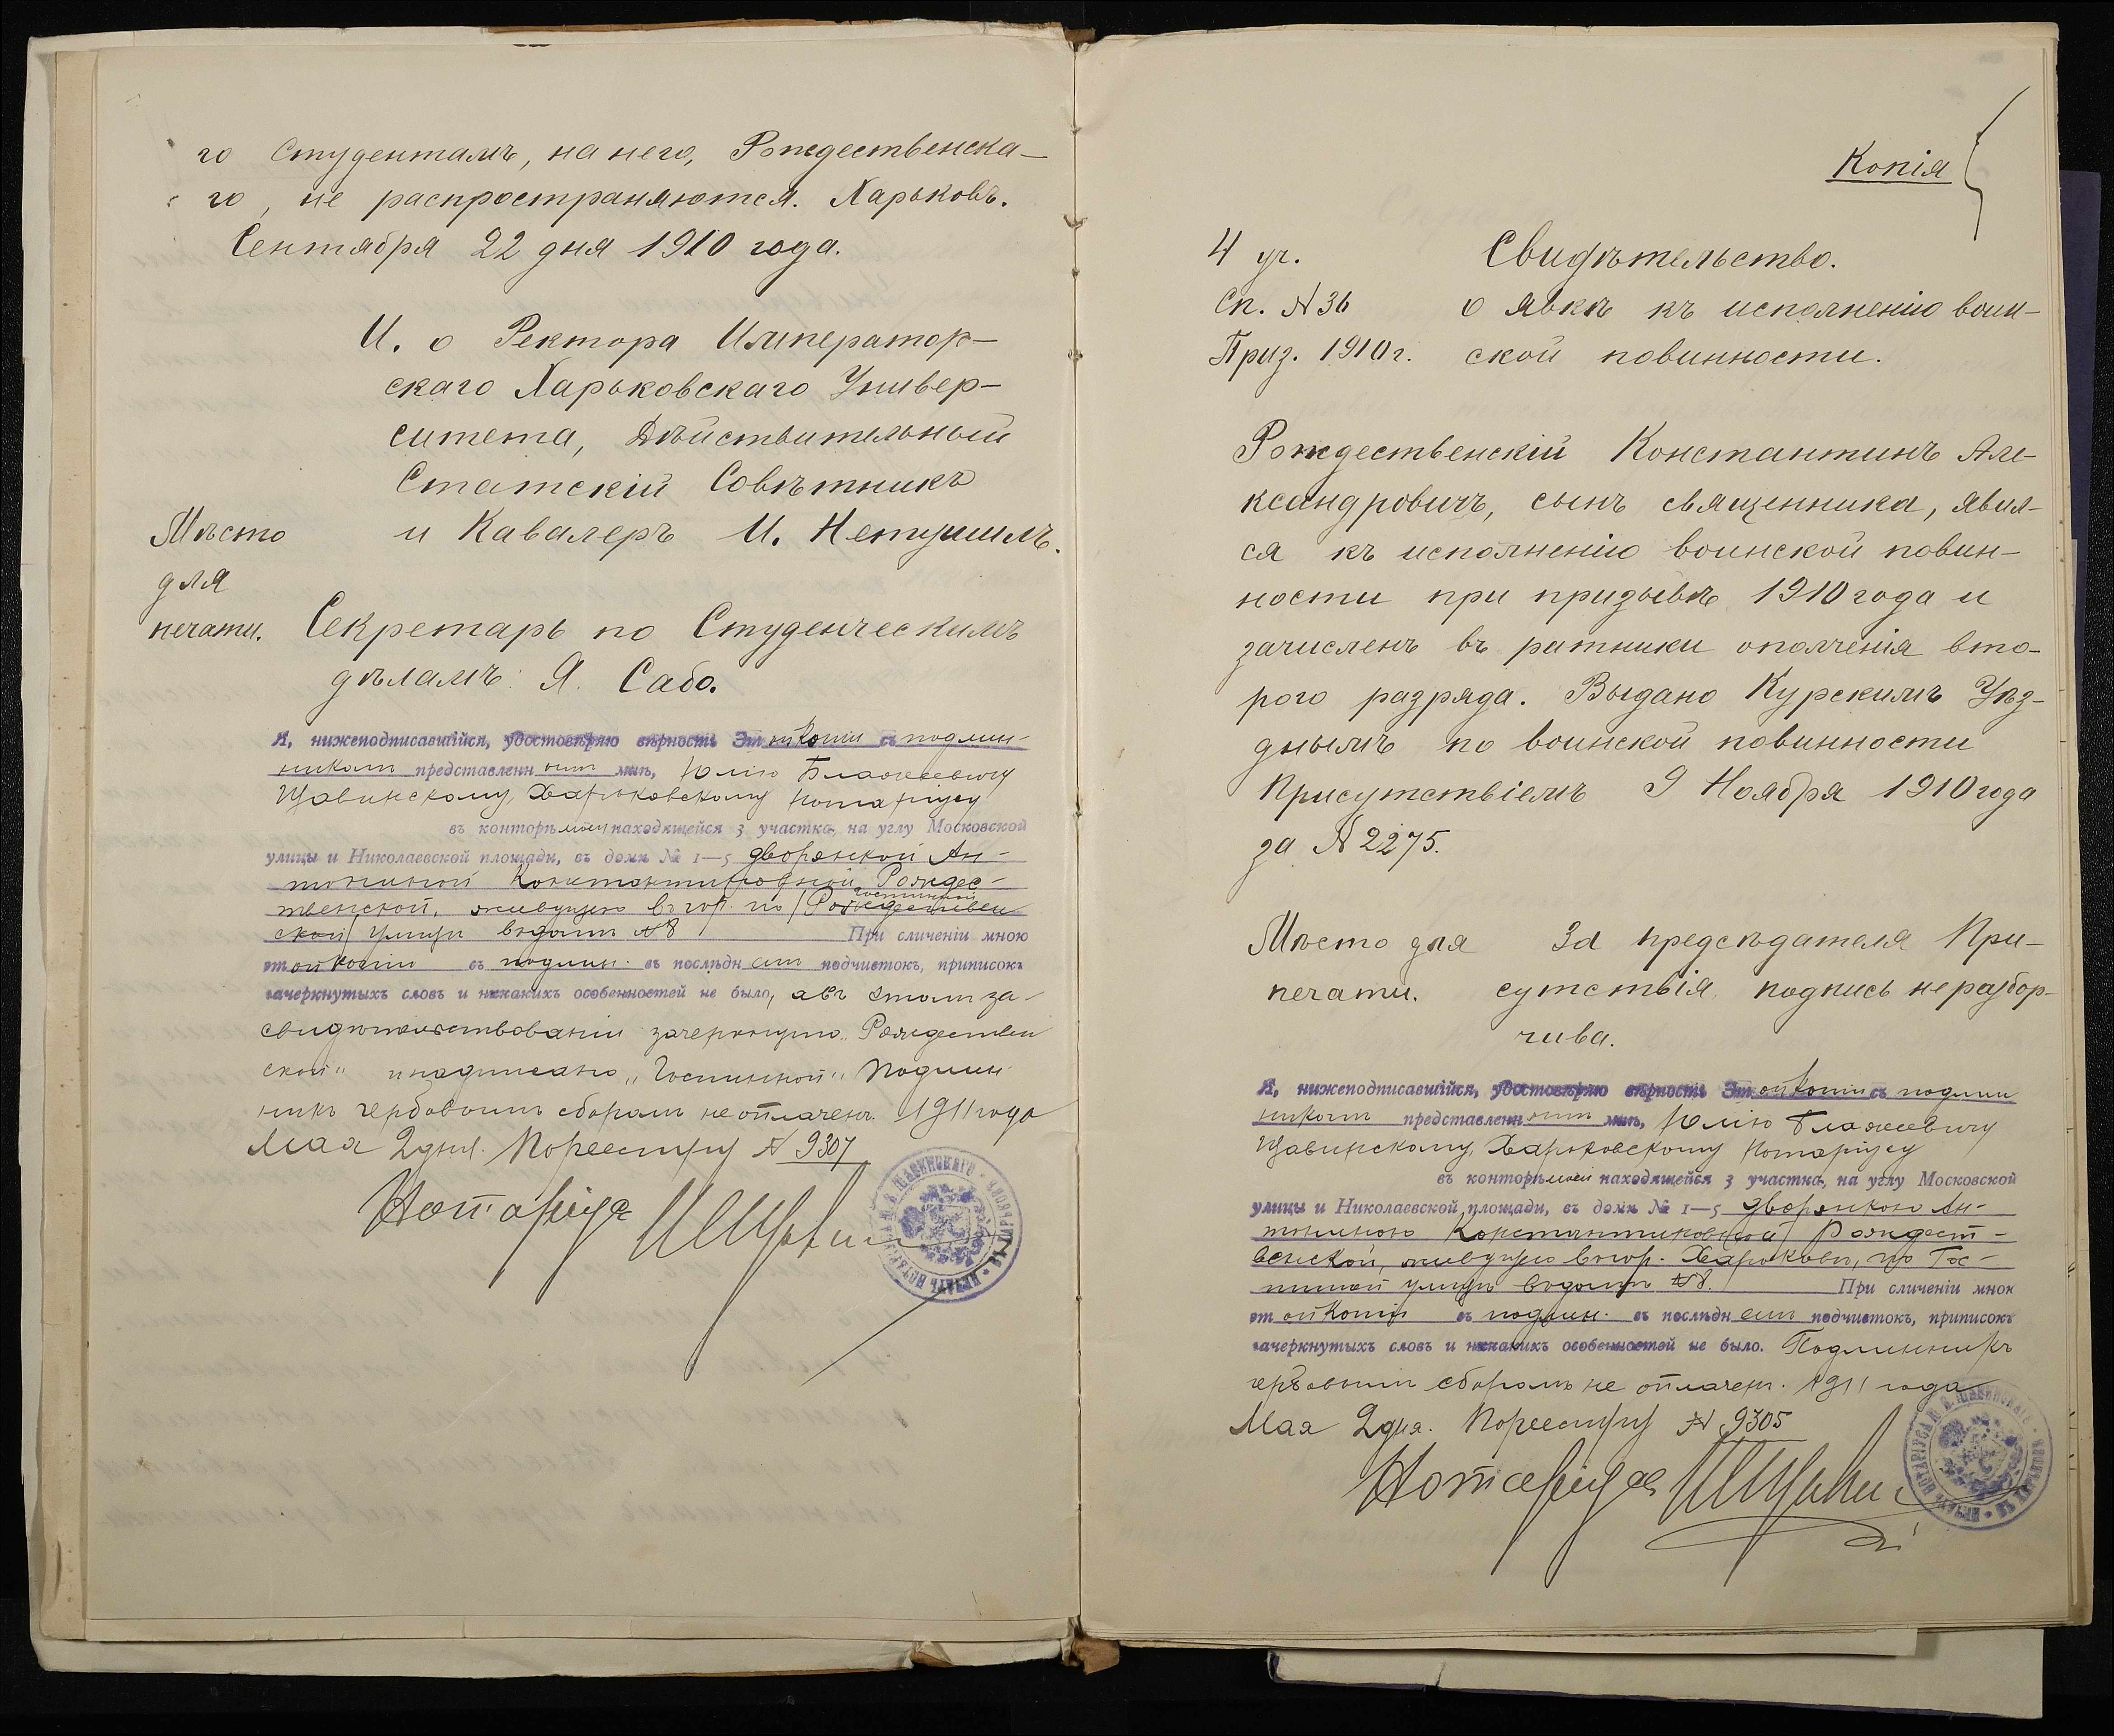 го студентамъ, на него, Рождественска-
го, не распространяются. Харьковъ.
Сентября 22 дня 1910 года.
И. о Ректора Император-
скаго Харьковскаго Универ-
ситета, Дѣйствительный
Статскій Совѣтникъ
и Кавалеръ И. Нетушилъ.
Мѣсто
для
печати.
Секретарь по Студенческимъ
дѣламъ: Я. Сабо.
Я, нижеподписавшійся, удостовѣряю вѣрность этой копіи съ подлин-
никомъ представленнымъ мнѣ, Юлію Блажеевичу
Щавинскому, Харьковскому Нотаріусу
въ конторѣ моей находящейся 3 участка, на углу Московской
улицы и Николаевской площади, въ домѣ № 1—5 дворянкой Ан-
тониной Константиновной Рождес-
твенской, живущею въ гор. по Рождествен
Гостинной
ской улицѣ въ домѣ № 8 При сличеніи мною
этой копіи съ подлин. въ послѣднемъ подчистокъ, приписокъ
зачеркнутыхъ словъ и никакихъ особенностей не было, а въ этомъ за-
свидѣтельствованіи зачеркнуто „Рождествен
ской" и надписано „Гостинной" Подлин
никъ гербовымъ сборомъ не оплаченъ. 1911 года
Мая 2 дня. По реестру № 9307
Нотаріусъ
Копія
4 уч.
Сп. № 36
Приз. 1910 г.
Свидѣтельство.
о явкѣ къ исполненію воин-
ской повинности.
Рождественскій Константинъ Але-
ксандровичъ, сынъ священника, явил-
ся къ исполненію воинской повин-
ности при призывѣ 1910 года и
зачисленъ въ ратники ополченія вто-
рого разряда. Выдано Курскимъ Уѣз-
днымъ по воинской повинности
Присутствіемъ 9 Ноября 1910 года
за № 2275.
Мѣсто для
печати.
За предсѣдателя При-
сутствія, подпись неразбор-
чива.
Я, нижеподписавшійся, удостовѣряю вѣрность этой копіи съ подлин
никомъ представленнымъ мнѣ, Юлію Блажеевичу
Щавинскому, Харьковскому Нотаріусу
въ конторѣ моей находящейся 3 участка, на углу Московской
улицы и Николаевской площади, въ домѣ № 1—5 дворянкою Ан-
тониною Константиновной Рождест-
венской, живущею въ гор. Харьковѣ, по Гос-
тинной улицѣ въ домѣ № 8. При сличеніи мною
этой копіи съ подлин. въ послѣднемъ подчистокъ, приписокъ
зачеркнутыхъ словъ и никакихъ особенностей не было. Подлинникъ
гербовымъ сборомъ не оплаченъ. 1911 года
Мая 2 дня. По реестру № 9305
Нотаріусъ